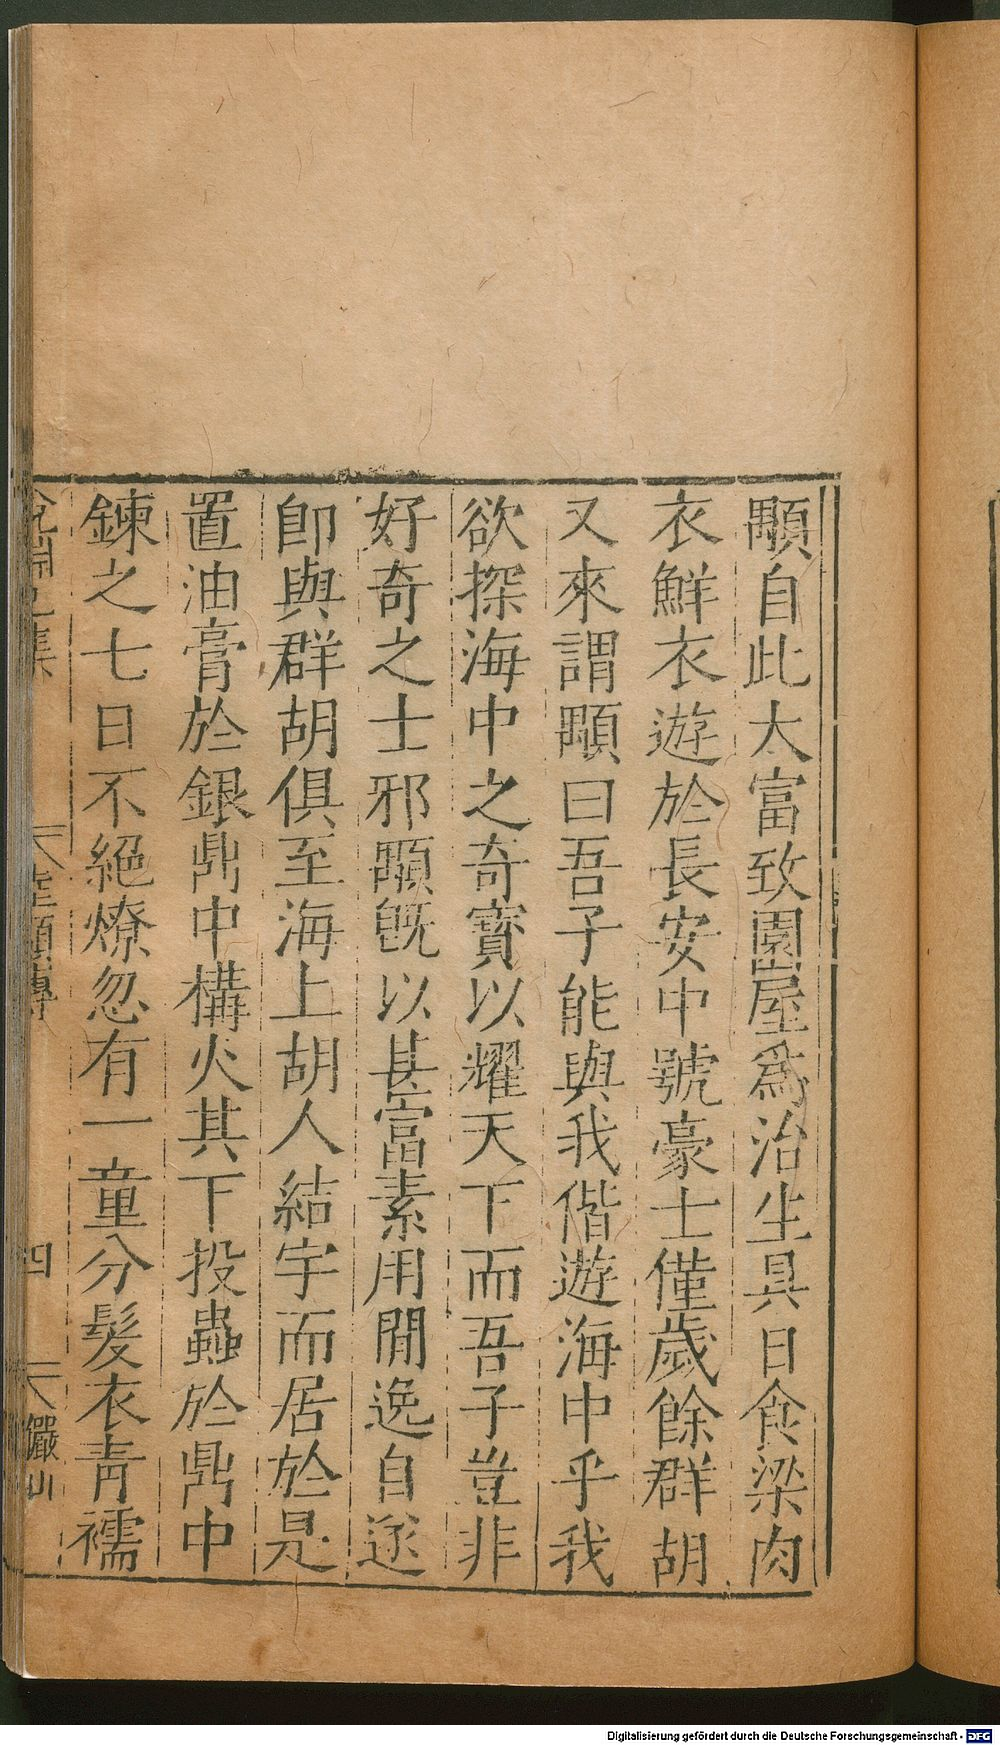 顒自此大富致園屋為治生具日食梁肉
衣鮮衣遊於長安中號豪士僅歲餘群胡
又來謂顒曰吾子能與我偕遊海中乎我
欲探海中之奇寶以耀天下而吾子豈非
好奇之士邪顒旣以甚富素用閒逸自遂
卽與群胡俱至海上胡人結宇而居於是
置油膏於銀鼎中構火其下投蟲於鼎中
鍊之七日不絕燎忽有一童分髮衣青襦
說淵 集
顒傳
四
儼山
Digitalisierung gefördert durch die Deutsche Forschungsgemeinschaft - DFG